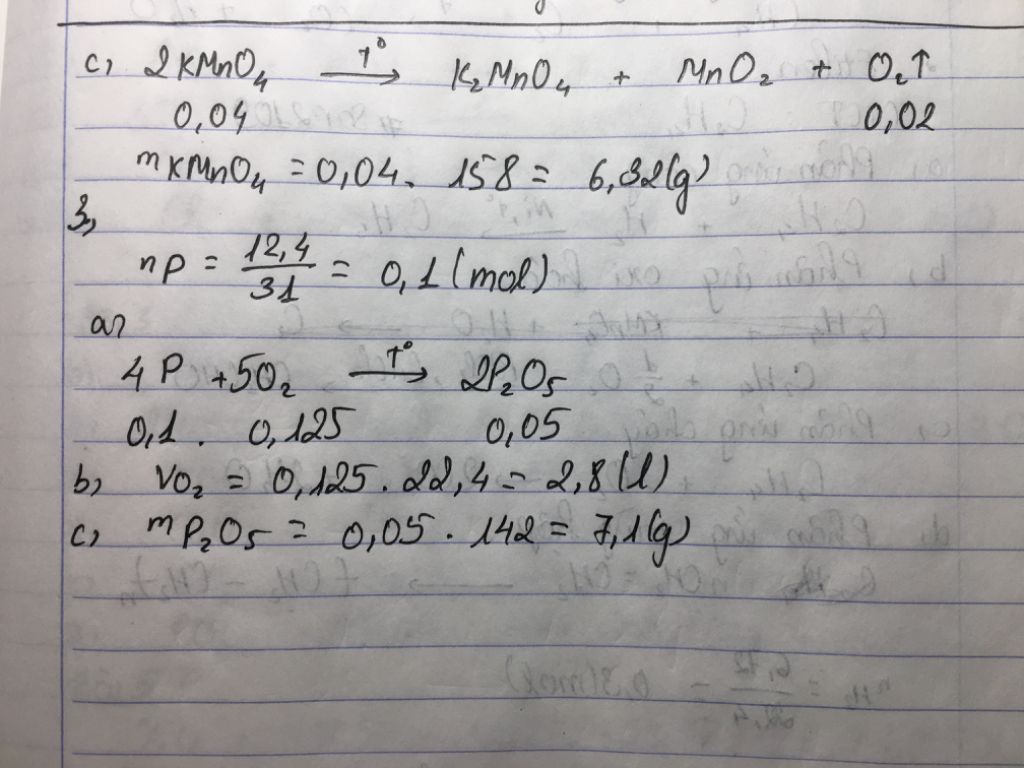 c, 2KMnO₄ —t°→ K₂MnO₄ + MnO₂ + O₂↑
0,04 0,02
mKMnO₄ = 0,04. 158 = 6,32(g)
3,
nP = 12,4/31 = 0,1 (mol)
a,
4P +5O₂ —t°→ 2P₂O₅
0,1. 0,125 0,05
b, VO₂ = 0,125. 22,4 = 2,8 (l)
c, mP₂O₅ = 0,05 . 142 = 7,1(g)